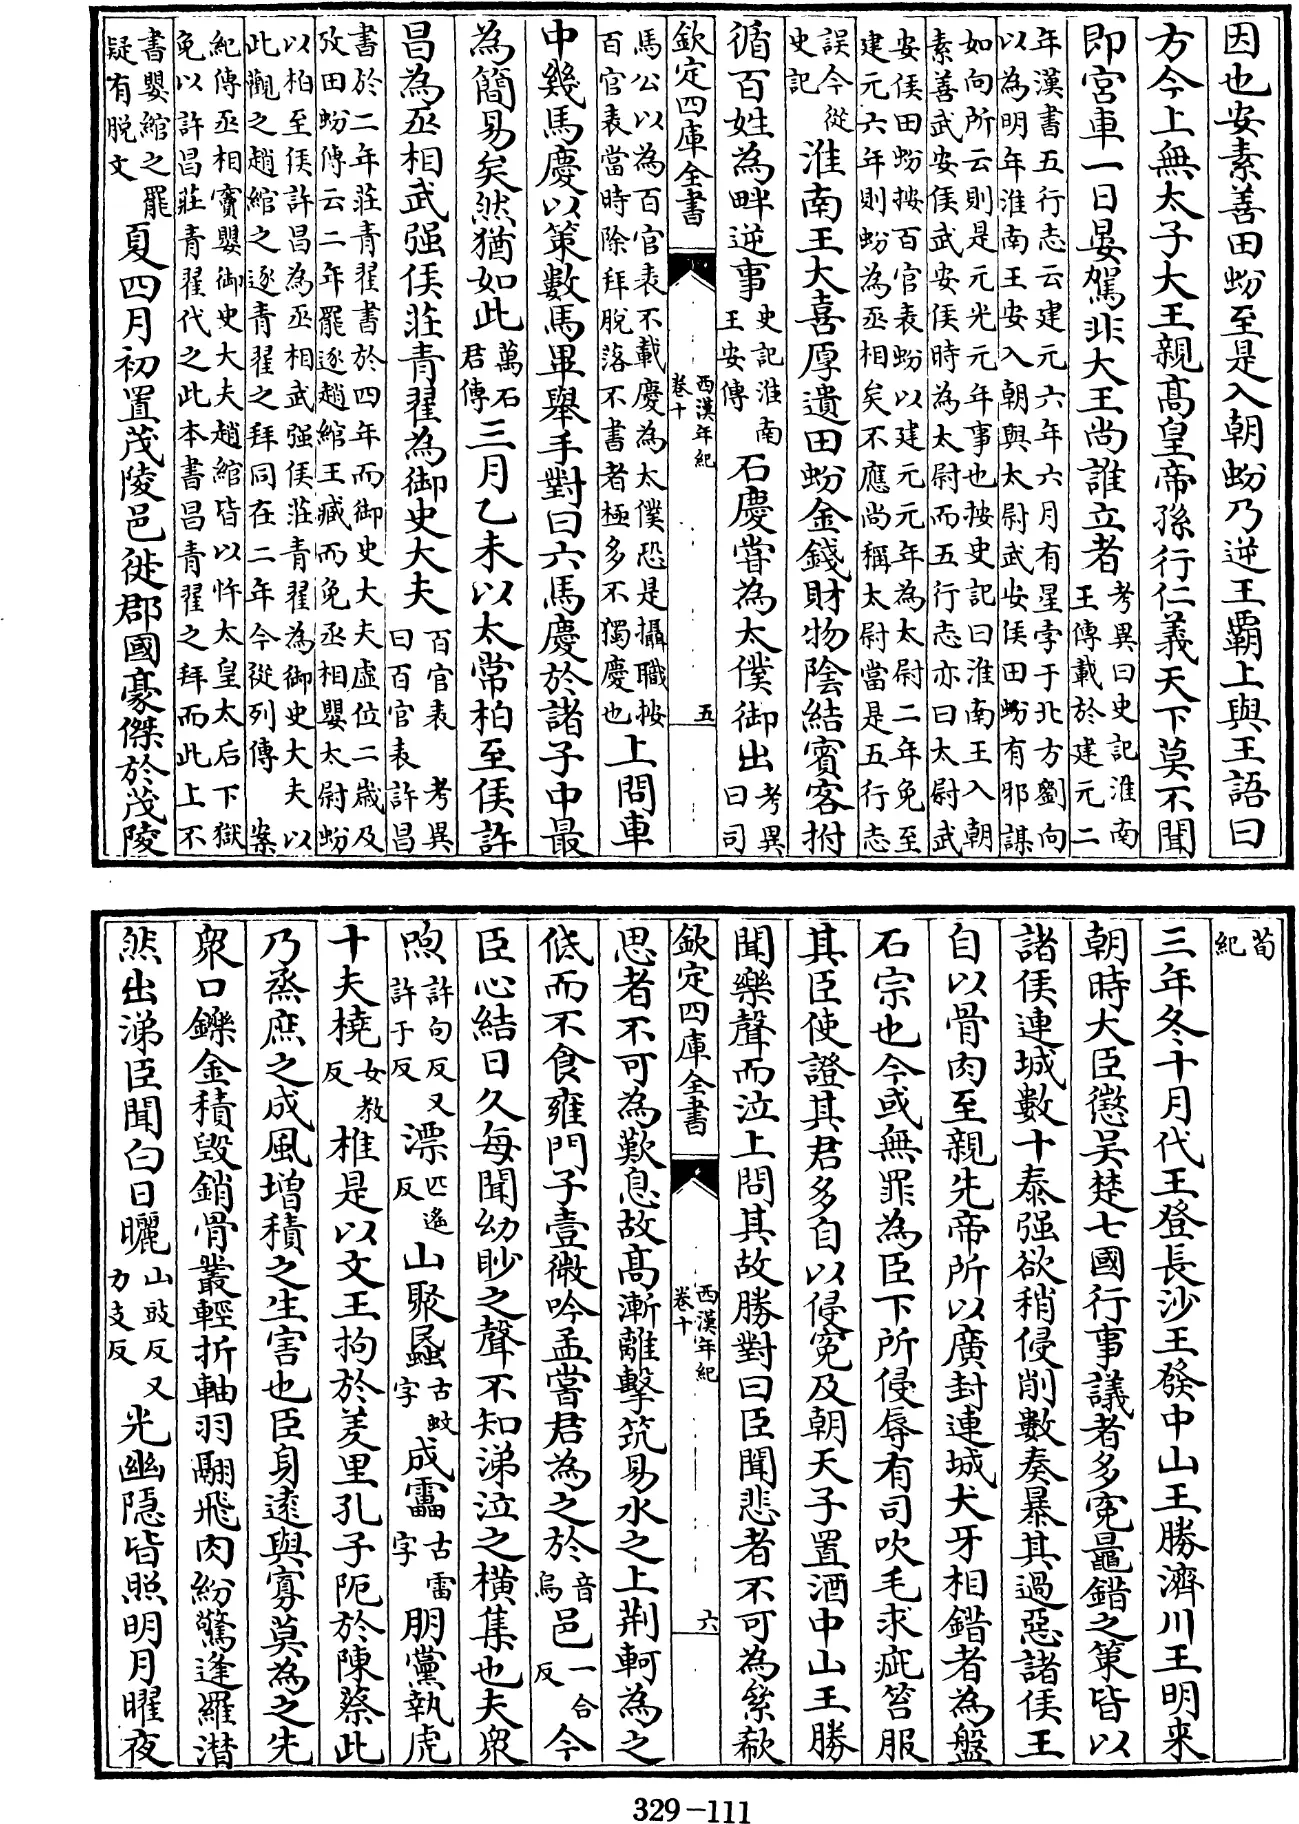 因也安素善田蚡至是入朝蚡乃逆王霸上與王語曰
方今上無太子大王親髙皇帝孫行仁義天下莫不聞
即宮車一日晏駕非大王尚誰立者考異曰史記淮南王傳載於建元二
年漢書五行志云建元六年六月有星孛于北方劉向
以為明年淮南王安入朝與太尉武安侯田蚡有邪謀
如向所云則是元光元年事也按史記曰淮南王入朝
素善武安侯武安侯時為太尉而五行志亦曰太尉武
安侯田蚡按百官表蚡以建元元年為太尉二年免至
建元六年則蚡為丞相矣不應尚稱太尉當是五行志
誤今從史記淮南王大喜厚遺田蚡金錢財物隂結賓客拊
循百姓為畔逆事史記淮南王安傳石慶嘗為太僕御出考異曰司
欽定四庫全書
西漢年紀
卷十
五
馬公以為百官表不載慶為太僕恐是攝職按百官表當時除拜脱落不書者極多不獨慶也上問車
中幾馬慶以策數馬畢舉手對曰六馬慶於諸子中最
為簡易矣然猶如此萬石君傳三月乙未以太常柏至侯許
昌為丞相武强侯莊青翟為御史大夫百官表 考異曰百官表許昌
書於二年莊青翟書於四年而御史大夫虛位二歲及
攷田蚡傳云二年罷逐趙綰王臧而免丞相嬰太尉蚡
以柏至侯許昌為丞相武强侯莊青翟為御史大夫以
此觀之趙綰之逐青翟之拜同在二年今從列傳 案
紀傳丞相竇嬰御史大夫趙綰皆以忤太皇太后下獄
免以許昌莊青翟代之此本書昌青翟之拜而此上不
書嬰綰之罷疑有脱文夏四月初置茂陵邑徙郡國豪傑於茂陵
荀紀
三年冬十月代王登長沙王發中山王勝濟川王明来
朝時大臣懲吴楚七國行事議者多寃鼂錯之策皆以
諸侯連城數十泰强欲稍侵削數奏暴其過惡諸侯王
自以骨肉至親先帝所以廣封連城犬牙相錯者為盤
石宗也今或無罪為臣下所侵辱有司吹毛求疵笞服
其臣使證其君多自以侵寃及朝天子置酒中山王勝
聞樂聲而泣上問其故勝對曰臣聞悲者不可為絫欷
欽定四庫全書
西漢年紀
卷十
六
思者不可為歎息故髙漸離擊筑易水之上荆軻為之
低而不食雍門子壹微吟孟嘗君為之於音烏邑一合反今
臣心結日久每聞幼眇之聲不知涕泣之横集也夫衆
喣許句反又許于反漂匹遙反山聚蟁古蚊字成靁古雷字朋黨執虎
十夫橈女教反椎是以文王拘於羑里孔子阨於陳蔡此
乃烝庶之成風增積之生害也臣身逺與寡莫為之先
衆口鑠金積毁銷骨叢輕折軸羽翮飛肉紛驚逢羅潸
然出涕臣聞白日曬山豉反又力支反光幽隠皆照明月曜夜
329-111